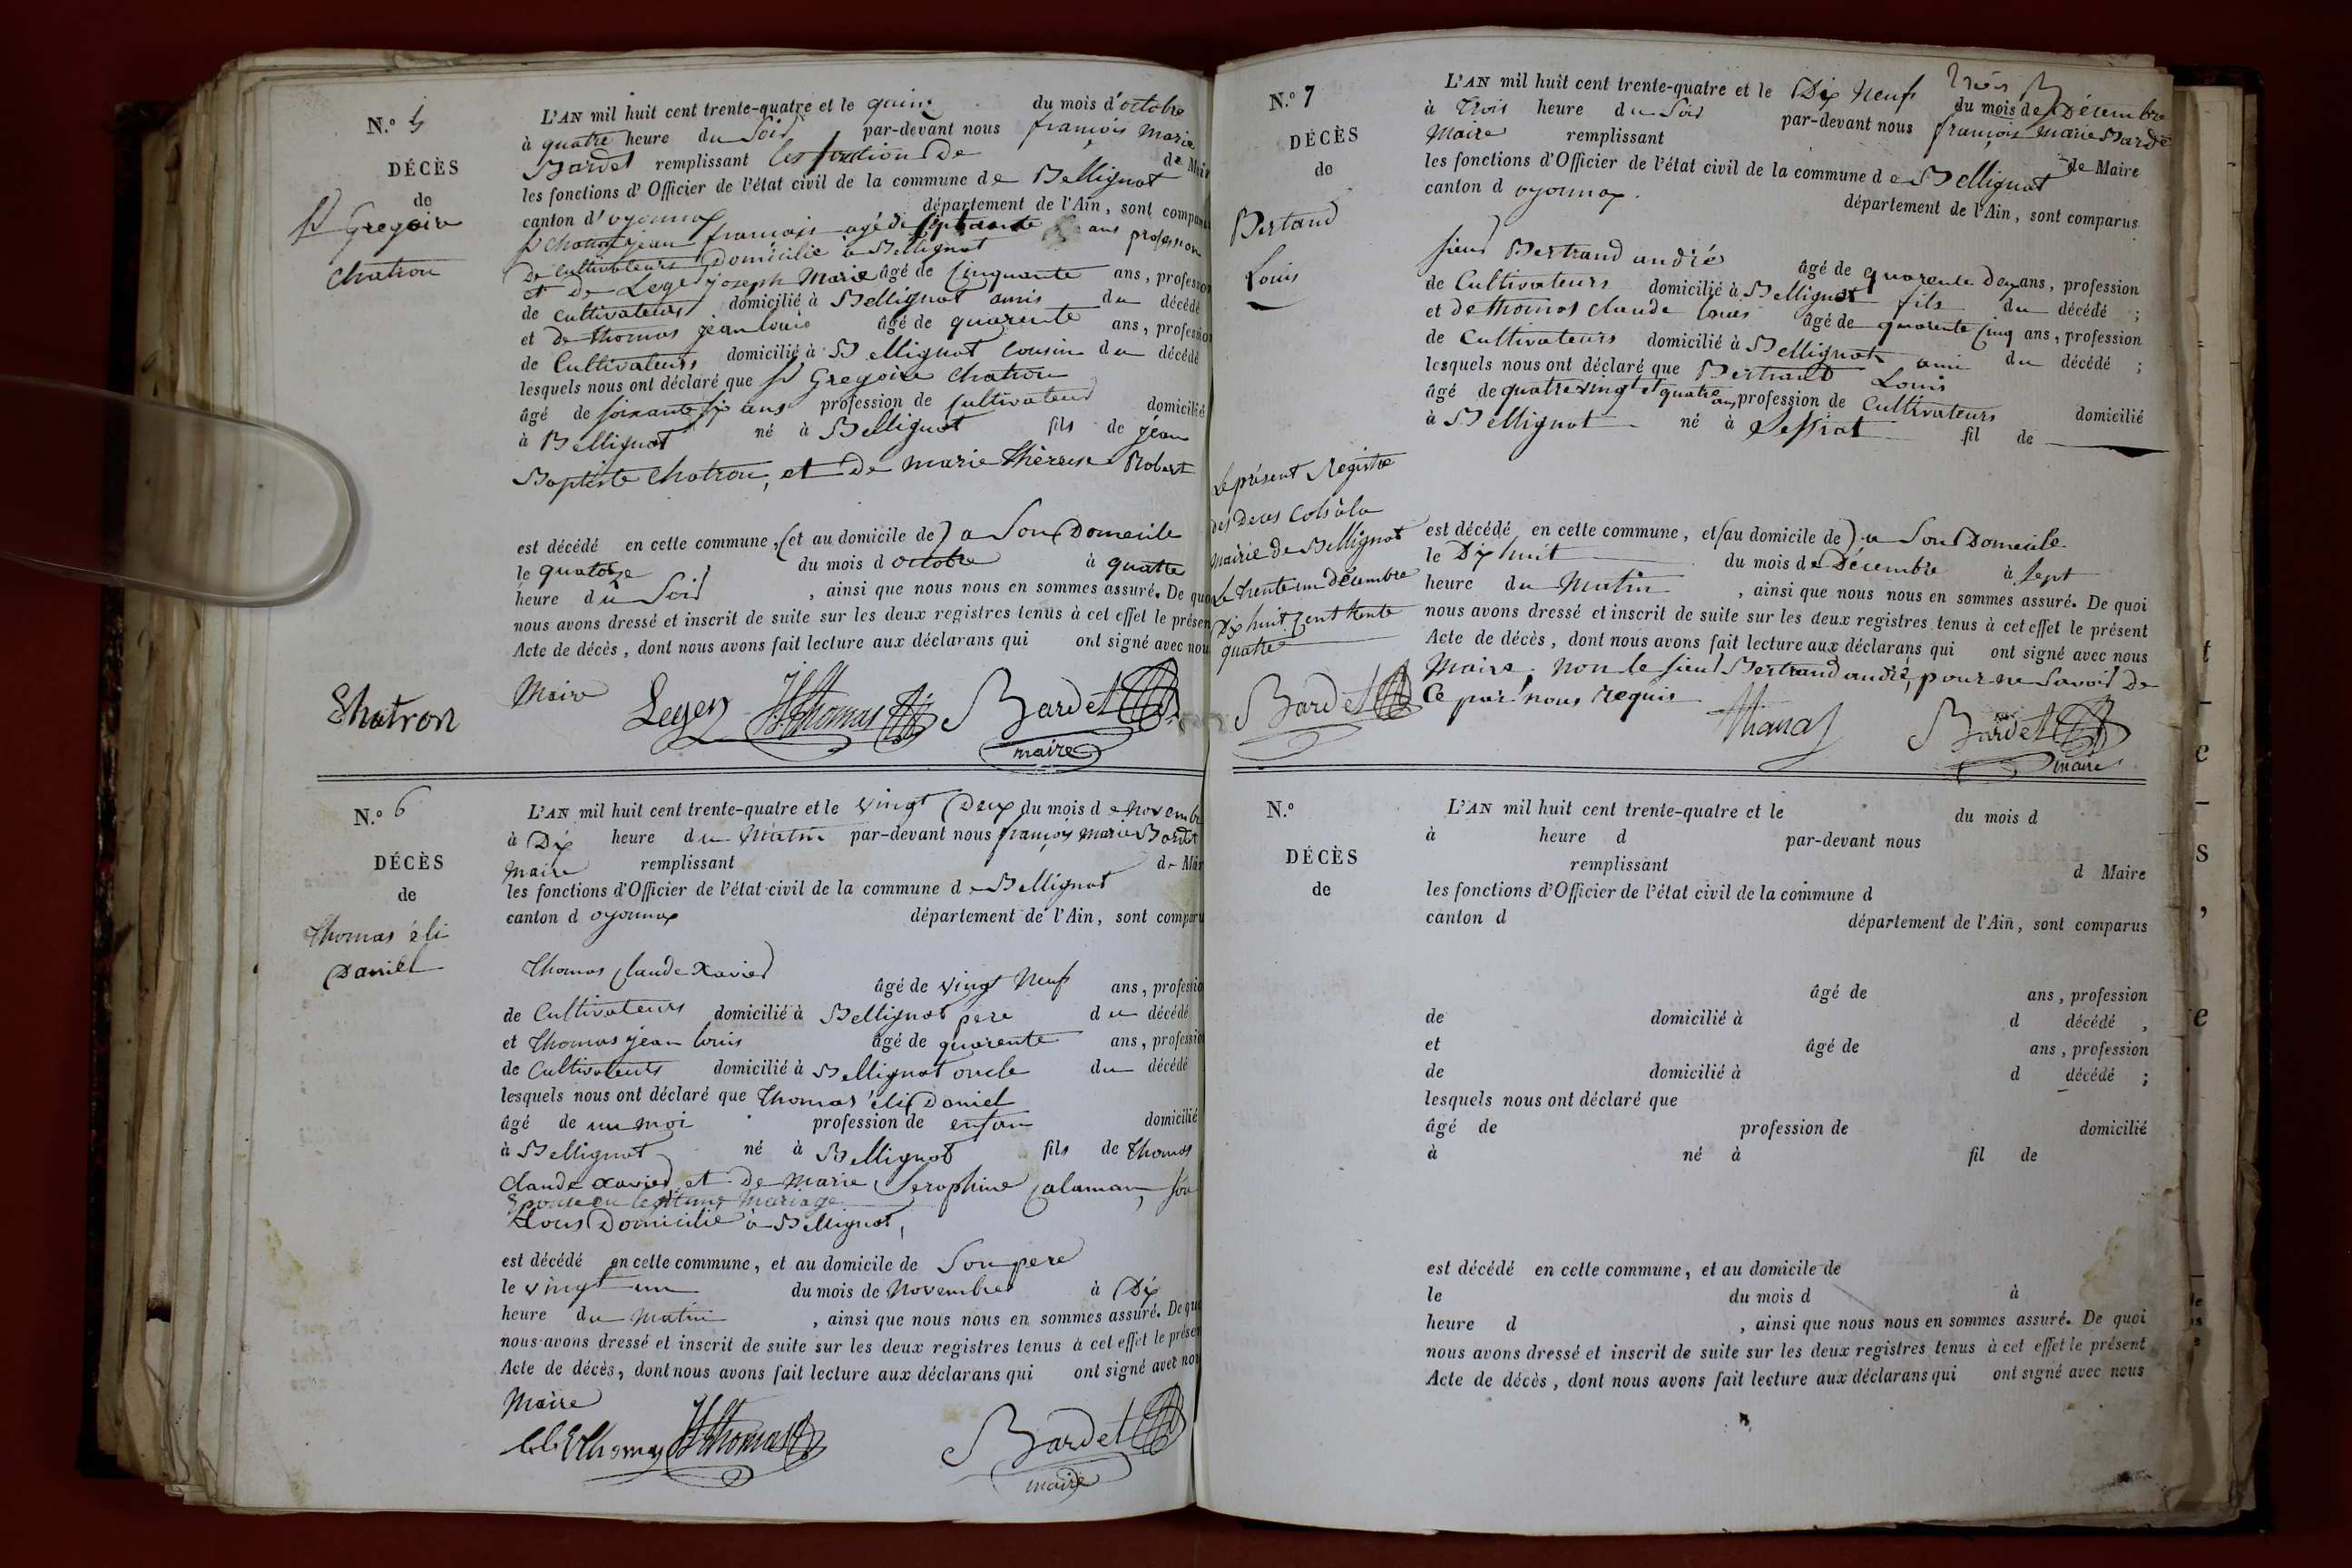 N.° 5
DÉCÈS
de
Gregoire
Chatron
L'AN mil huit cent trente-quatre et le quinz du mois d'octobre
à quatre heure du Soir par-devant nous françois Marie
Bardet remplissant les fonctions de de Mair
les fonctions d'Officier de l'état civil de la commune de Bellignat
canton d'oyonnax département de l'Ain, sont comparu
Chatron jean francois agé de septante ans profession
de Cultivateurs Domicilié à Bellignat
et de Leger joseph Marie âgé de Cinquante ans, profession
de cultivateurs domicilié à Bellignat amis du décédé
et de thomas jean louis âgé de quarente ans, profession
de Cultivateurs domicilié à Bellignat Cousin du décédé
lesquels nous ont déclaré que Gregoire Chatron
âgé de soixante six ans profession de Cultivateur domicilié
à Bellignat né à Bellignat fils de jean
Baptiste Chatron, et de marie thèrese Robert
est décédé en cette commune, (et au domicile de) a Son Domicile
le quatorze du mois d octobre à quatre
heure du Soir , ainsi que nous nous en sommes assuré. De quo
nous avons dressé et inscrit de suite sur les deux registres tenus à cet effet le présen
Acte de décès, dont nous avons fait lecture aux déclarans qui ont signé avec nou
Maire
Chatron Leger Thomas Bardet
maire
N.° 6
DÉCÈS
de
thomas éli
Daniel
L'AN mil huit cent trente-quatre et le vingt Deux du mois de novembr
à Dix heure du Matin par-devant nous françois marie Bardet
Maire remplissant de Mair
les fonctions d'Officier de l'état civil de la commune de Bellignat
canton d oyonnax département de l'Ain, sont comparu
Thomas Claude Xavier âgé de vingt Neuf ans, professio
de Cultivateurs domicilié à Bellignat pere du décédé
et Thomas jean louis âgé de quarente ans, professio
de Cultivateurs domicilié à Bellignat oncle du décédé
lesquels nous ont déclaré que Thomas éli Daniel
âgé de un moi profession de enfan domicilié
à Bellignat né à Bellignat fils de Thomas
Claude Xavier et de Marie Serophine Calaman, son
Epouse en legitime Mariage
tous Domicilié à Bellignat,
est décédé en cette commune, et au domicile de Son pere
le vingt un du mois de Novembre à Dix
heure du Matin , ainsi que nous nous en sommes assuré. De quo
nous avons dressé et inscrit de suite sur les deux registres tenus à cet effet le présen
Acte de décès, dont nous avons fait lecture aux déclarans qui ont signé avec nou
Maire
Thomas Thomas Bardet
maire
N.° 7
DÉCÈS
de
Bertand
Louis
L'AN mil huit cent trente-quatre et le Dix Neuf du mois de Décembre
à trois heure du Soir par-devant nous françois Marie Bardet
Maire remplissant de Maire
les fonctions d'Officier de l'état civil de la commune de Bellignat
canton d oyonnax. département de l'Ain, sont comparus
sieur Bertrand andré âgé de quarente deux ans, profession
de Cultivateurs domicilié à Bellignat fils du décédé ;
et de thomas claude louis âgé de quarente cinq ans, profession
de Cultivateurs domicilié à Bellignat ami du décédé ;
lesquels nous ont déclaré que Bertrand Louis
âgé de quatre vingt et quatre ans profession de Cultivateurs domicilié
à Bellignat né à fil de
est décédé en cette commune, et (au domicile de) a Son Domicile
le Dix huit du mois de Décembre à sept
heure du Matin , ainsi que nous nous en sommes assuré. De quoi
nous avons dressé et inscrit de suite sur les deux registres tenus à cet effet le présent
Acte de décès, dont nous avons fait lecture aux déclarans qui ont signé avec nous
Maire, non le sieur Bertrand andré, pour ne savoir De
Ce par nous requis
Bardet
maire
Le présent Registre
des Deces Clos à la
Mairie de Bellignat
Le trente un décembre
Dix huit Cent trente
quatre
Bardet
N.°
DÉCÈS
de
L'AN mil huit cent trente-quatre et le du mois d
à heure d par-devant nous
remplissant d Maire
les fonctions d'Officier de l'état civil de la commune d
canton d département de l'Ain, sont comparus
âgé de ans, profession
de domicilié à d décédé ,
et âgé de ans, profession
de domicilié à d décédé ;
lesquels nous ont déclaré que
âgé de profession de domicilié
à né à fil de
est décédé en cette commune, et au domicile de
le du mois d à
heure d , ainsi que nous nous en sommes assuré. De quoi
nous avons dressé et inscrit de suite sur les deux registres tenus à cet effet le présent
Acte de décès, dont nous avons fait lecture aux déclarans qui ont signé avec nous